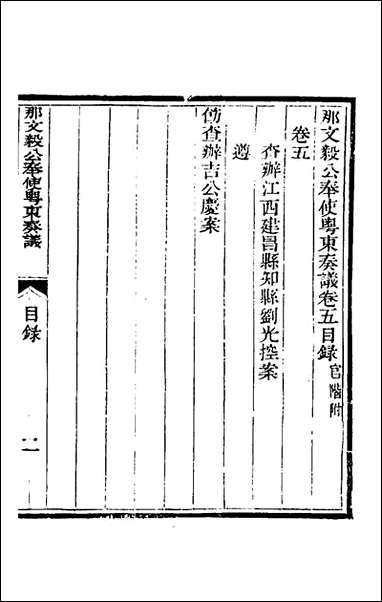 那文毅公奉使粵東奏議卷五目錄 官階附
卷五
查辦江西建昌縣知縣劉光控案
遵
飭查辦吉公慶案
那文毅公奉使粵東奏議
目錄
一